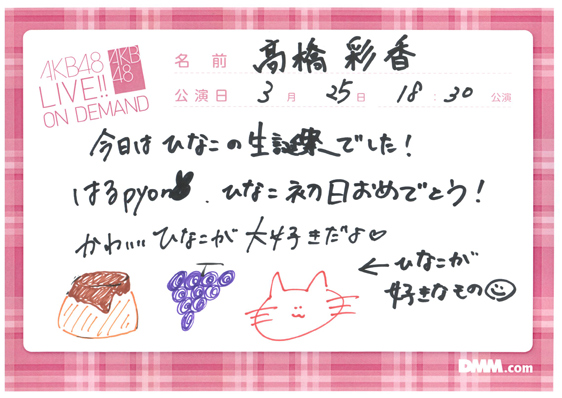 AKB48
LIVE!!
ON DEMAND
AKB
48
名前 高橋彩香
公演日 3月 25日 18:30 公演
今日はひなこの生誕祭でした!
はるpyon. ひなこ初日おめでとう!
かわいいひなこが大好きだよ♡
← ひなこが
好きなもの
DMM.com